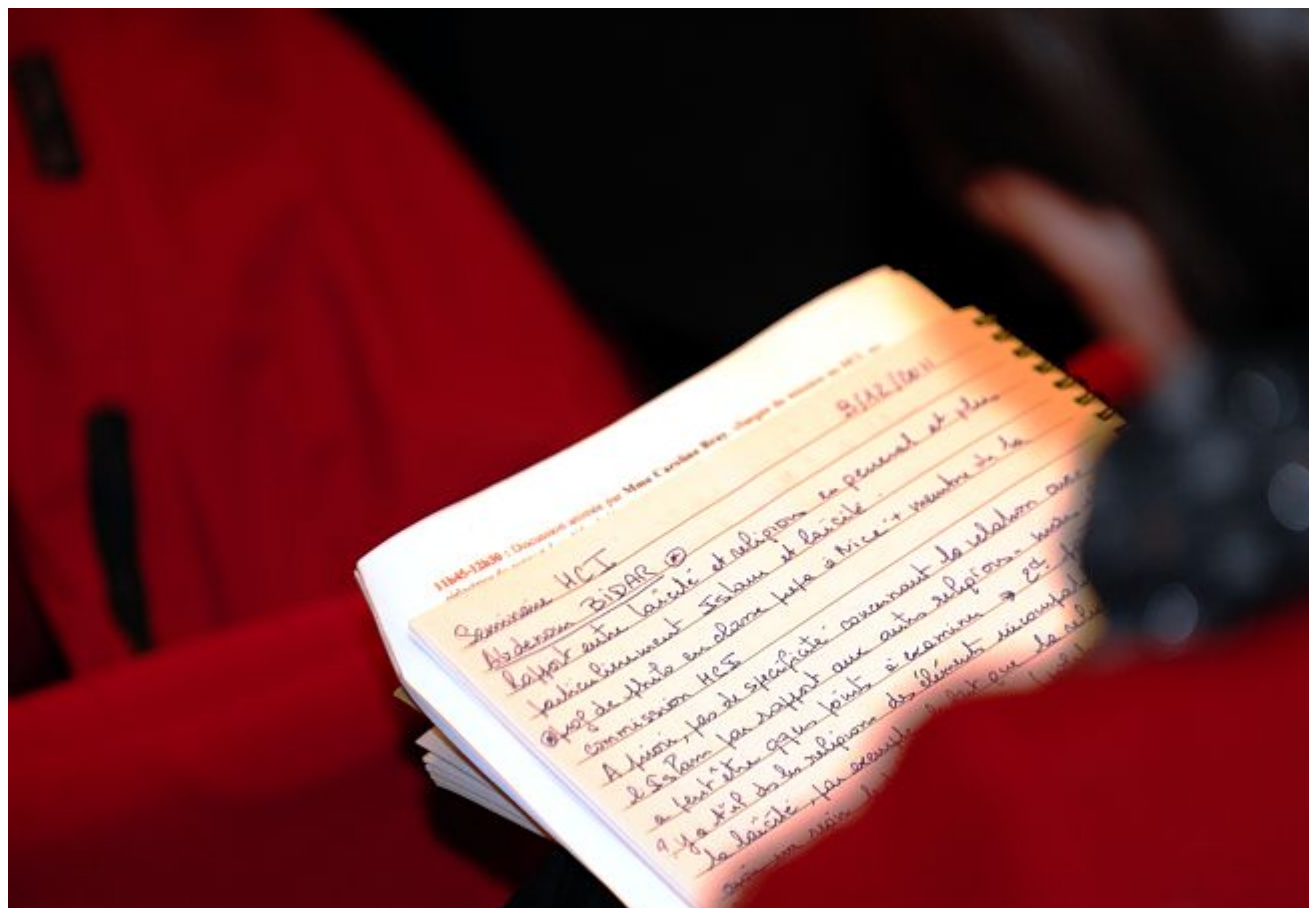 11h45-12h30 : Discussion animée par Mme Caroline Bray, chargée de mission au HCI
9/12/2011
Séminaire HCI
Abdenour BiDAR *
Rapport entre laïcité et religions en général et plus
particulièrement Islam et laïcité.
* prof de philo en classe prépa à Nice + membre de la
commission HCI
A priori, pas de spécificité concernant la relation avec
l'Islam par rapport aux autres religions - mais
a peut être qques points à examiner
? Y a t'il ds les religions des éléments
la laïcité, par exemple que la